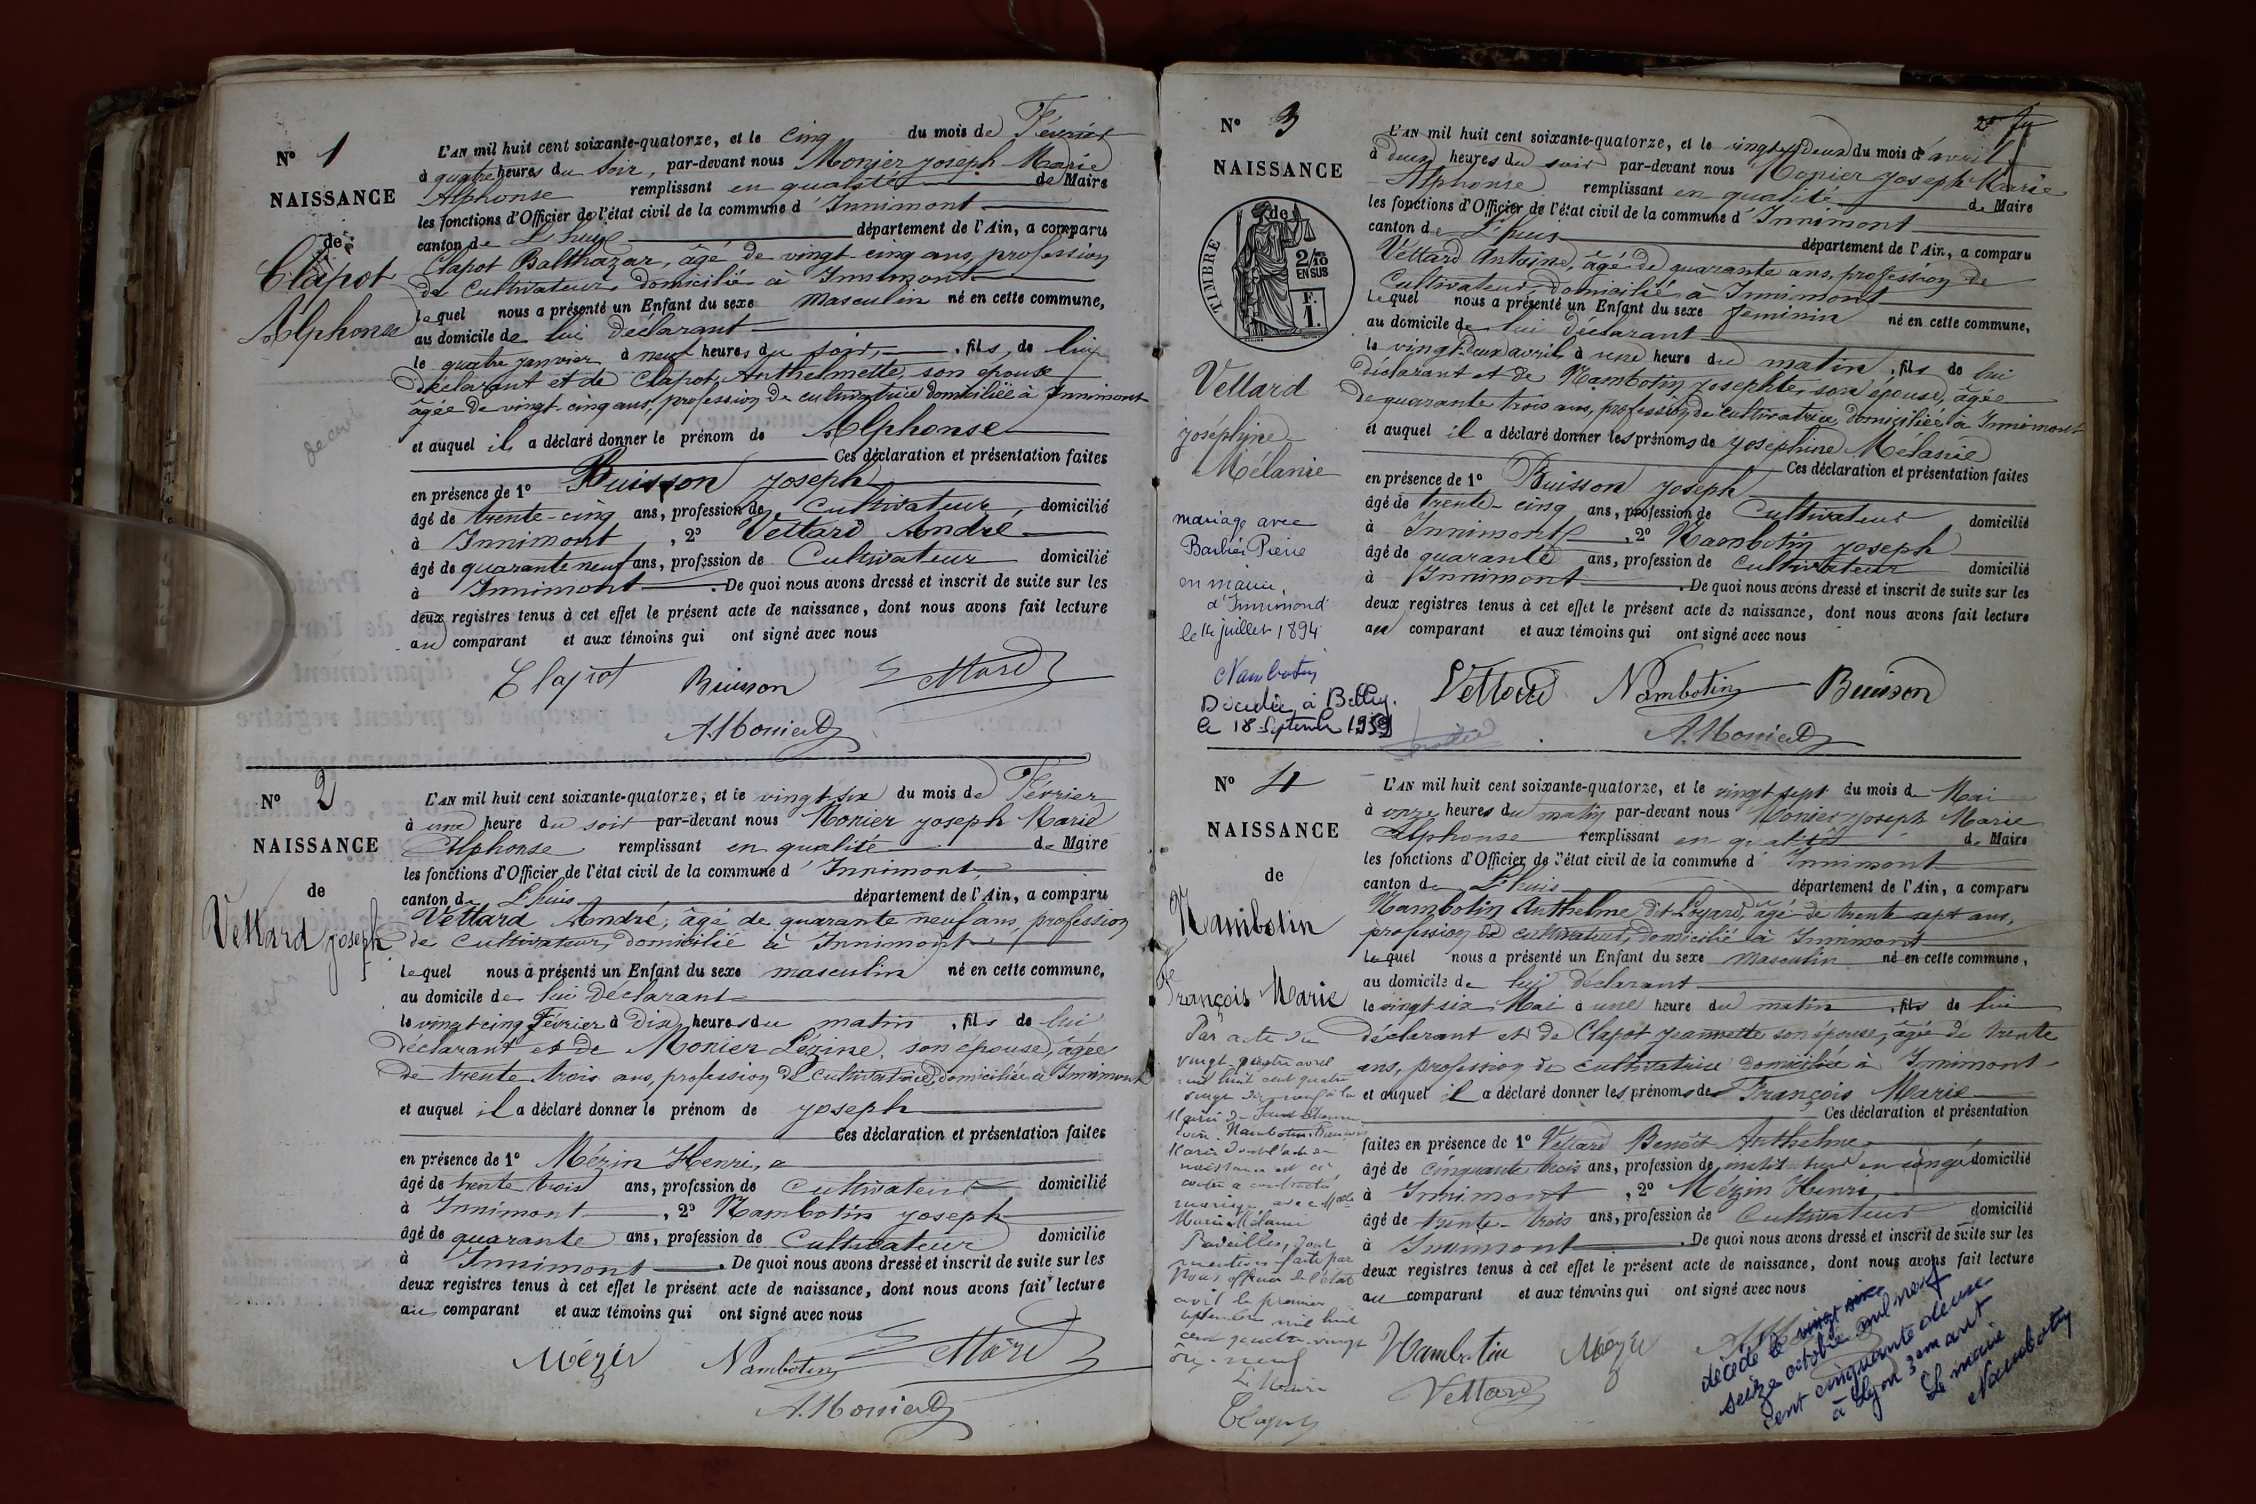 N° 1
NAISSANCE
de
Clapot
Alphonse
L'AN mil huit cent soixante-quatorze, et le cinq du mois de Février
à quatre heures du soir, par-devant nous Monier joseph Marie
Alphonse remplissant en qualité de Maire
les fonctions d'Officier de l'état civil de la commune d'Innimont
canton de L'huis département de l'Ain, a comparu
Clapot Balthazar, âgé de vingt-cinq ans, profession
de Cultivateur, domicilié à Innimont
lequel nous a présenté un Enfant du sexe masculin né en cette commune,
au domicile de lui déclarant
le quatre janvier à neuf heures du soir, fils de lui
déclarant et de Clapot, Anthelmette, son épouse
âgée de vingt-cinq ans, profession de cultivatrice domiciliée à Innimont
et auquel il a déclaré donner le prénom de Alphonse
Ces déclaration et présentation faites
en présence de 1° Buisson joseph
âgé de trente-cinq ans, profession de Cultivateur, domicilié
à Innimont, 2° Vettard André
âgé de quarante neuf ans, profession de Cultivateur domicilié
à Innimont. De quoi nous avons dressé et inscrit de suite sur les
deux registres tenus à cet effet le présent acte de naissance, dont nous avons fait lecture
au comparant et aux témoins qui ont signé avec nous
Clapot Buisson Vettard
A. Monier
N° 2
NAISSANCE
de
Vettard joseph
L'AN mil huit cent soixante-quatorze, et le vingt-six du mois de Février
à une heure du soir par-devant nous Monier joseph Marie
Alphonse remplissant en qualité de Maire
les fonctions d'Officier de l'état civil de la commune d'Innimont,
canton de L'huis département de l'Ain, a comparu
Vettard André, âgé de quarante neuf ans, profession
de Cultivateur, domicilié à Innimont
lequel nous a présenté un Enfant du sexe masculin né en cette commune,
au domicile de lui déclarant
le vingt-cinq Février à dix heures du matin, fils de lui
déclarant et de Monier Lezine, son épouse, âgée
de trente trois ans, profession de Cultivatrice, domiciliée à Innimont
et auquel il a déclaré donner le prénom de joseph
Ces déclaration et présentation faites
en présence de 1° Mézin Henri,
âgé de trente trois ans, profession de Cultivateur domicilié
à Innimont, 2° Nambotin joseph
âgé de quarante ans, profession de Cultivateur domicilié
à Innimont. De quoi nous avons dressé et inscrit de suite sur les
deux registres tenus à cet effet le présent acte de naissance, dont nous avons fait lecture
au comparant et aux témoins qui ont signé avec nous
Mézin Nambotin Vettard
A. Monier
N° 3
NAISSANCE
de
TIMBRE
2/10
EN SUS
F.
1.
Vettard
josephine
Mélanie
mariage avec
Barbier Pierre
en mairie
d'Innimond
le 14 juillet 1894
Nambotin
Décédée à Belley
le 18 Septembre 1959
L'AN mil huit cent soixante-quatorze, et le vingt-deux du mois d'avril
à deux heures du soir par-devant nous Monier joseph Marie
Alphonse remplissant en qualité de Maire
les fonctions d'Officier de l'état civil de la commune d'Innimont
canton de L'huis département de l'Ain, a comparu
Vettard Antoine, âgé de quarante ans, profession de
Cultivateur, domicilié à Innimont
lequel nous a présenté un Enfant du sexe féminin né en cette commune,
au domicile de lui déclarant
le vingt-deux avril à une heure du matin, fils de lui
déclarant et de Nambotin josephte, son épouse, âgée
de quarante trois ans, profession de cultivatrice, domiciliée à Innimont
et auquel il a déclaré donner les prénoms de josephine Mélanie
Ces déclaration et présentation faites
en présence de 1° Buisson joseph
âgé de trente-cinq ans, profession de Cultivateur domicilié
à Innimont, 2° Nambotin joseph
âgé de quarante ans, profession de Cultivateur domicilié
à Innimont. De quoi nous avons dressé et inscrit de suite sur les
deux registres tenus à cet effet le présent acte de naissance, dont nous avons fait lecture
au comparant et aux témoins qui ont signé avec nous
Vettard Nambotin Buisson
A. Monier
N° 4
NAISSANCE
de
Nambotin
François Marie
Par acte du
vingt-quatre avril
mil huit cent quatre
vingt dix-neuf à la
Mairie de Saint Etienne
Loire. Nambotin François
Marie dont l'acte de
naissance est ci
contre a contracté
mariage avec Melle
Marie Mélanie
dont
mention faite par
Nous officier de l'état
civil le premier
septembre mil huit
cent quatre-vingt
dix-neuf
Le Maire
Clapot
L'AN mil huit cent soixante-quatorze, et le vingt sept du mois de Mai
à onze heures du matin par-devant nous Monier joseph Marie
Alphonse remplissant en qualité de Maire
les fonctions d'Officier de l'état civil de la commune d'Innimont
canton de L'huis département de l'Ain, a comparu
Nambotin Anthelme dit Loyard, âgé de trente sept ans,
profession de cultivateur, domicilié à Innimont
lequel nous a présenté un Enfant du sexe masculin né en cette commune,
au domicile de lui déclarant
le vingt six Mai à une heure du matin, fils de lui
déclarant et de Clapot jeannette son épouse, âgée de trente
ans, profession de cultivatrice domiciliée à Innimont
et auquel il a déclaré donner les prénoms de François Marie
Ces déclaration et présentation
faites en présence de 1° Vettard Benoît Anthelme
âgé de cinquante trois ans, profession de instituteur en congé domicilié
à Innimont, 2° Mézin Henri,
âgé de trente-trois ans, profession de Cultivateur domicilié
à Innimont. De quoi nous avons dressé et inscrit de suite sur les
deux registres tenus à cet effet le présent acte de naissance, dont nous avons fait lecture
au comparant et aux témoins qui ont signé avec nous
Nambotin Mézin
Vettard
décédé le vingt six
seize octobre mil neuf
cent cinquante deux
à Lyon 3em arrt
Le maire
Nambotin